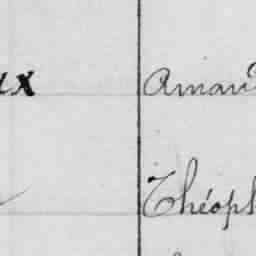 ux Aman
Théoph